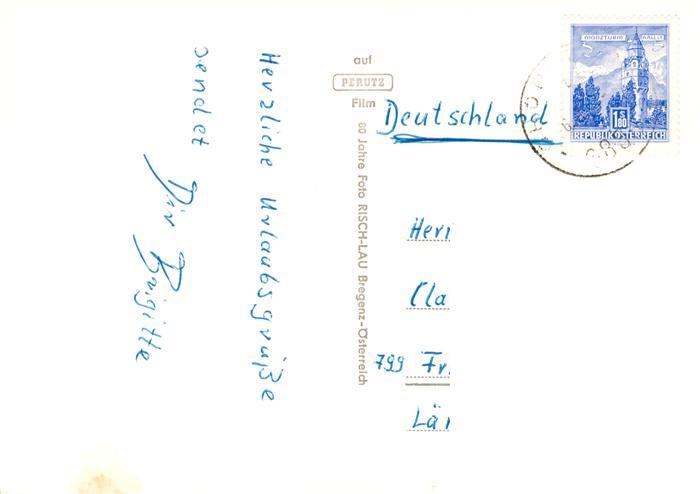 Herzliche Urlaubsgrüße
sendet
Dir Brigitte
auf
PERUTZ
Film
60 Jahre Foto RISCH-LAU Bregenz-Österreich
Deutschland
Herr
Cla
799 Fr.
Lä
MÜNZTURM
1 S 80
REPUBLIK ÖSTERREICH